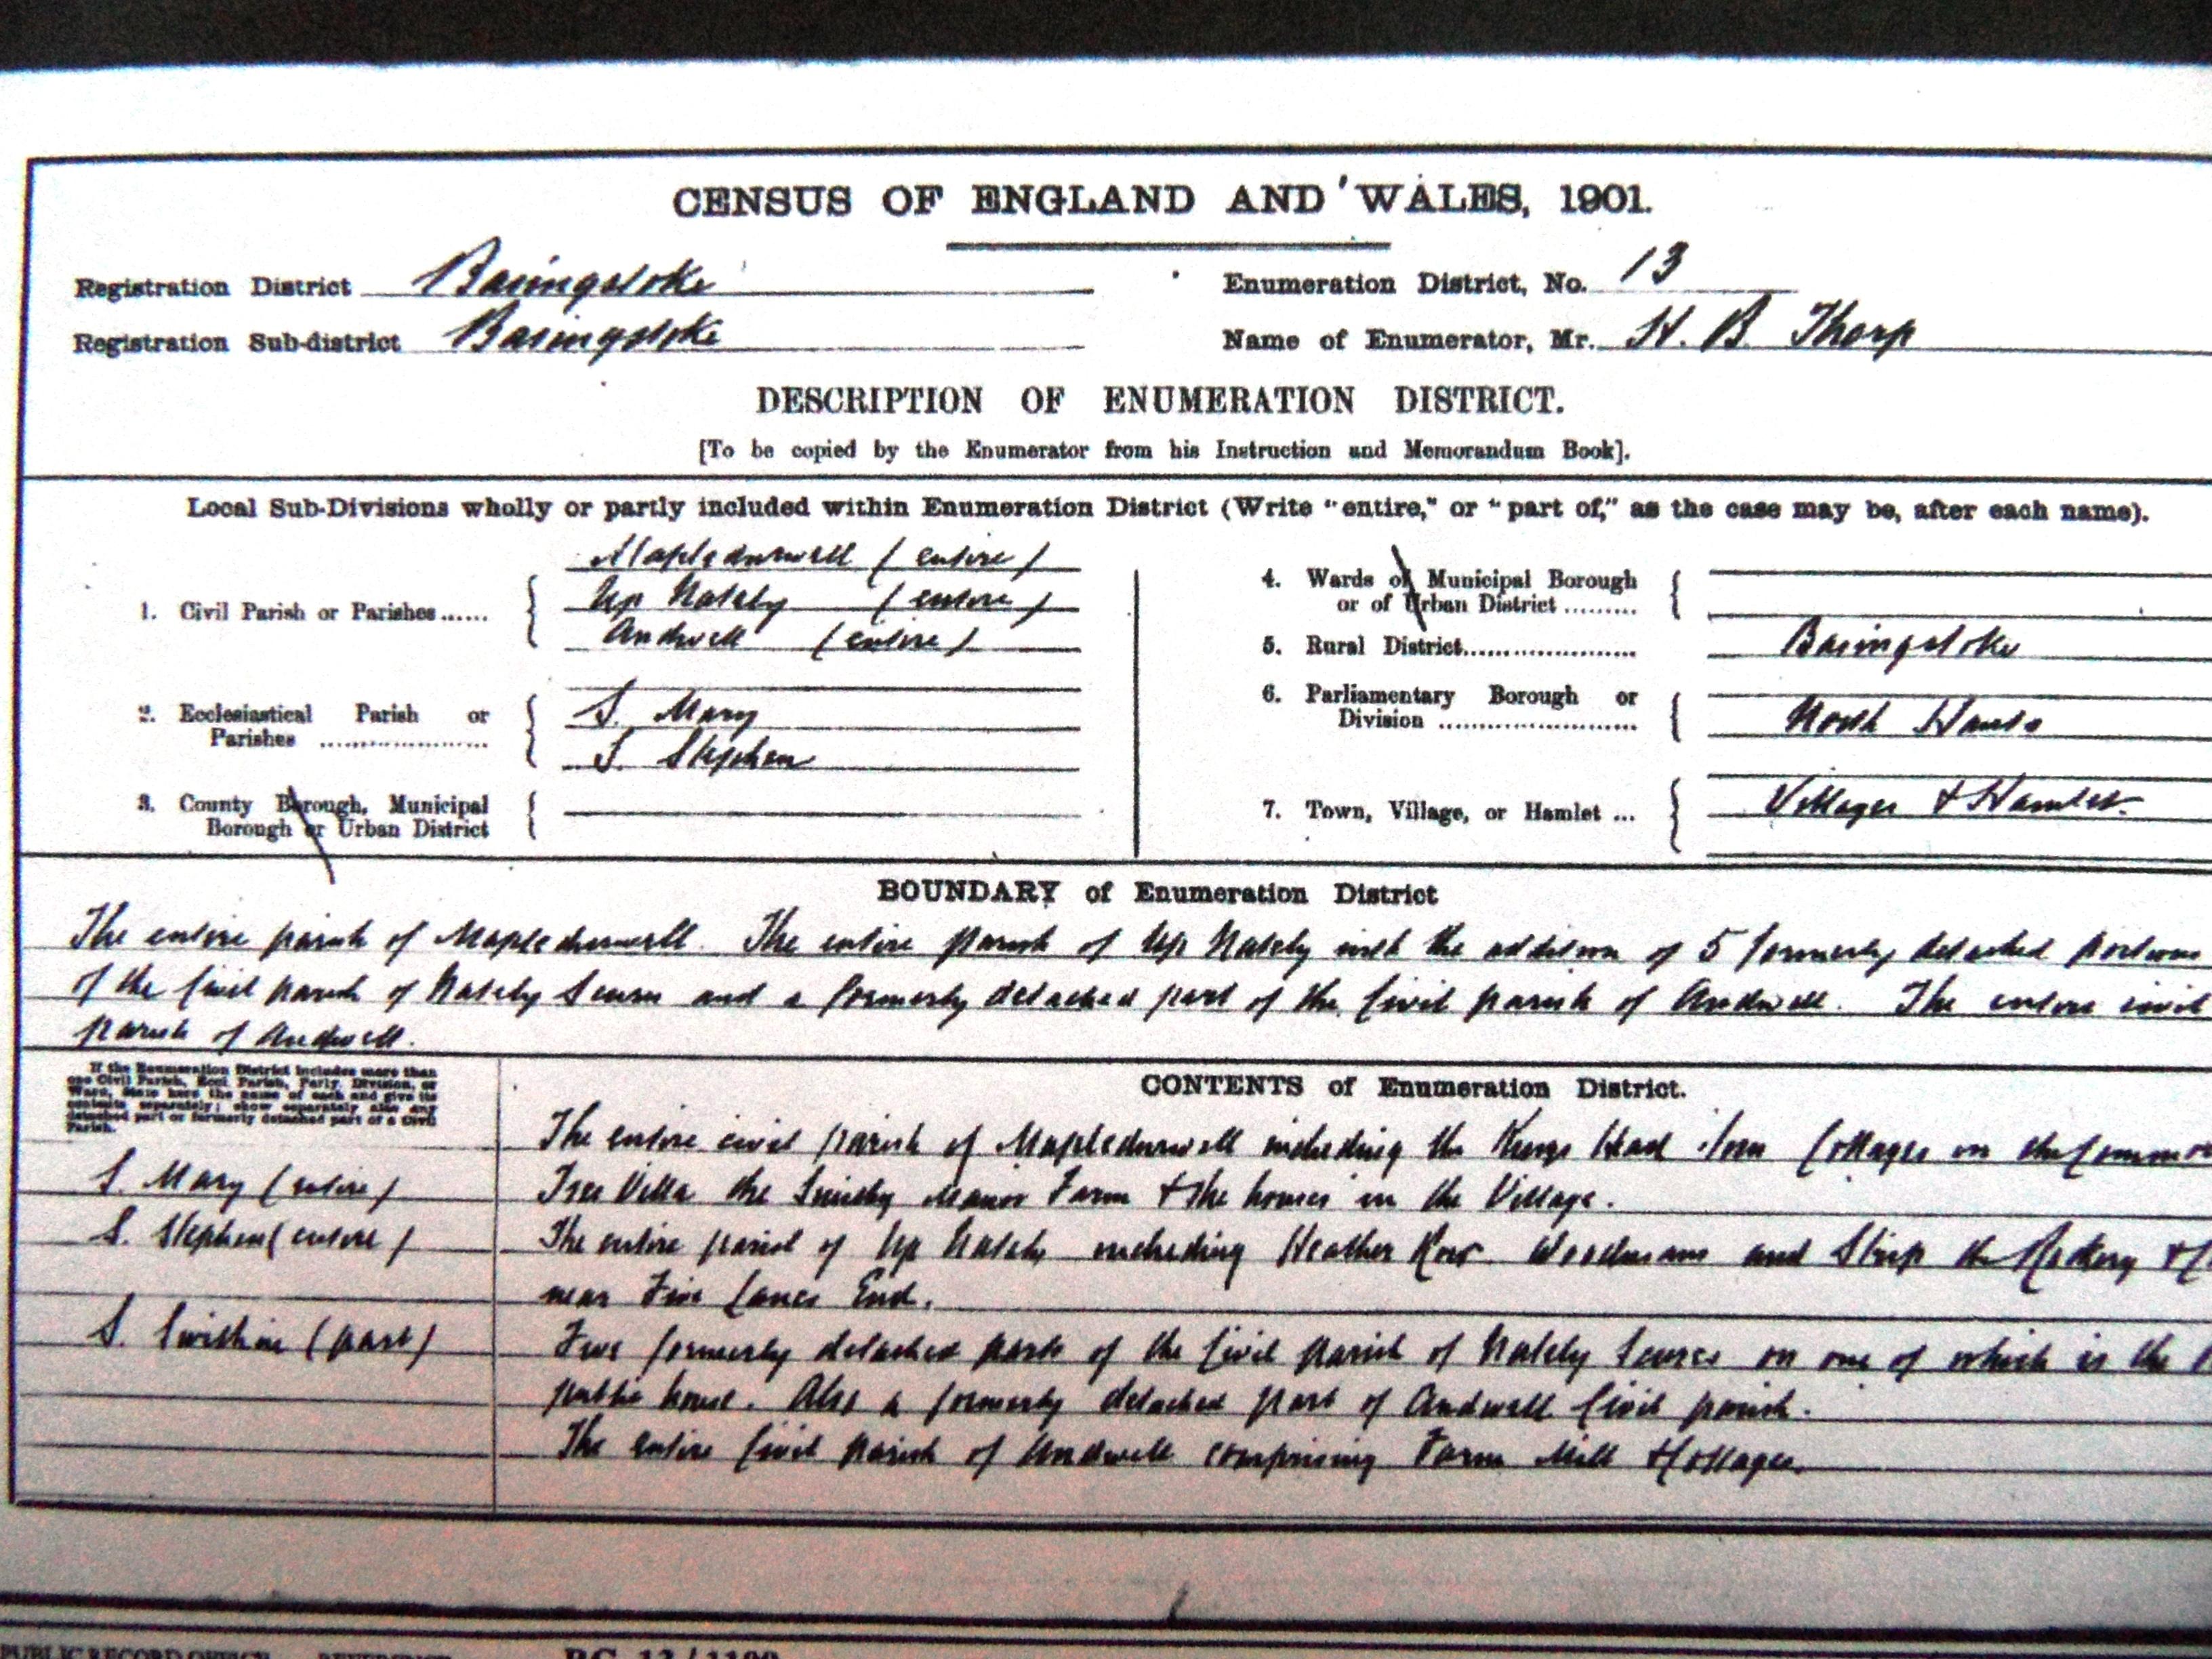 CENSUS OF ENGLAND AND WALES, 1901.
Registration District Basingstoke Enumeration District, No. 13
Registration Sub-district Basingstoke Name of Enumerator, Mr. H. B. Thorp
DESCRIPTION OF ENUMERATION DISTRICT.
[To be copied by the Enumerator from his Instruction and Memorandum Book].
Local Sub-Divisions wholly or partly included within Enumeration District (Write "entire," or "part of," as the case may be, after each name).
1. Civil Parish or Parishes......
Mapledurwell (entire)
Up Nately (entire)
Andwell (entire)
2. Ecclesiastical Parish or
Parishes ........................
S. Mary
S. Stephen
3. County Borough, Municipal
Borough or Urban District
4. Wards of Municipal Borough
or of Urban District .........
5. Rural District..................... Basingstoke
6. Parliamentary Borough or
Division ........................ North Hants
7. Town, Village, or Hamlet ... Villages & Hamlets
BOUNDARY of Enumeration District
The entire parish of Mapledurwell. The entire parish of Up Nately with the addition of 5 formerly detached portions
of the Civil parish of Nately Scures and a formerly detached part of the Civil parish of Andwell. The entire civil
parish of Andwell.
If the Enumeration District includes more than
one Civil Parish, Eccl. Parish, Parly. Division, or
Ward, State here the name of each and give its
contents separately; show separately also any
detached part or formerly detached part of a Civil
Parish.
CONTENTS of Enumeration District.
The entire civil parish of Mapledurwell including the Kings Head Inn Cottages on the Common
S. Mary (entire) Villa the Smithy Manor Farm & the houses in the Village.
S. Stephen (entire) The entire parish of Up Nately including Heather Row. and the Rookery
near Five Lanes End.
S. Swithin (part) Five formerly detached parts of the Civil parish of Nately Scures on one of which is the
public house. Also a formerly detached part of Andwell Civil parish.
The entire Civil parish of Andwell comprising Farm Mill & Cottages.
PUBLIC RECORD OFFICE